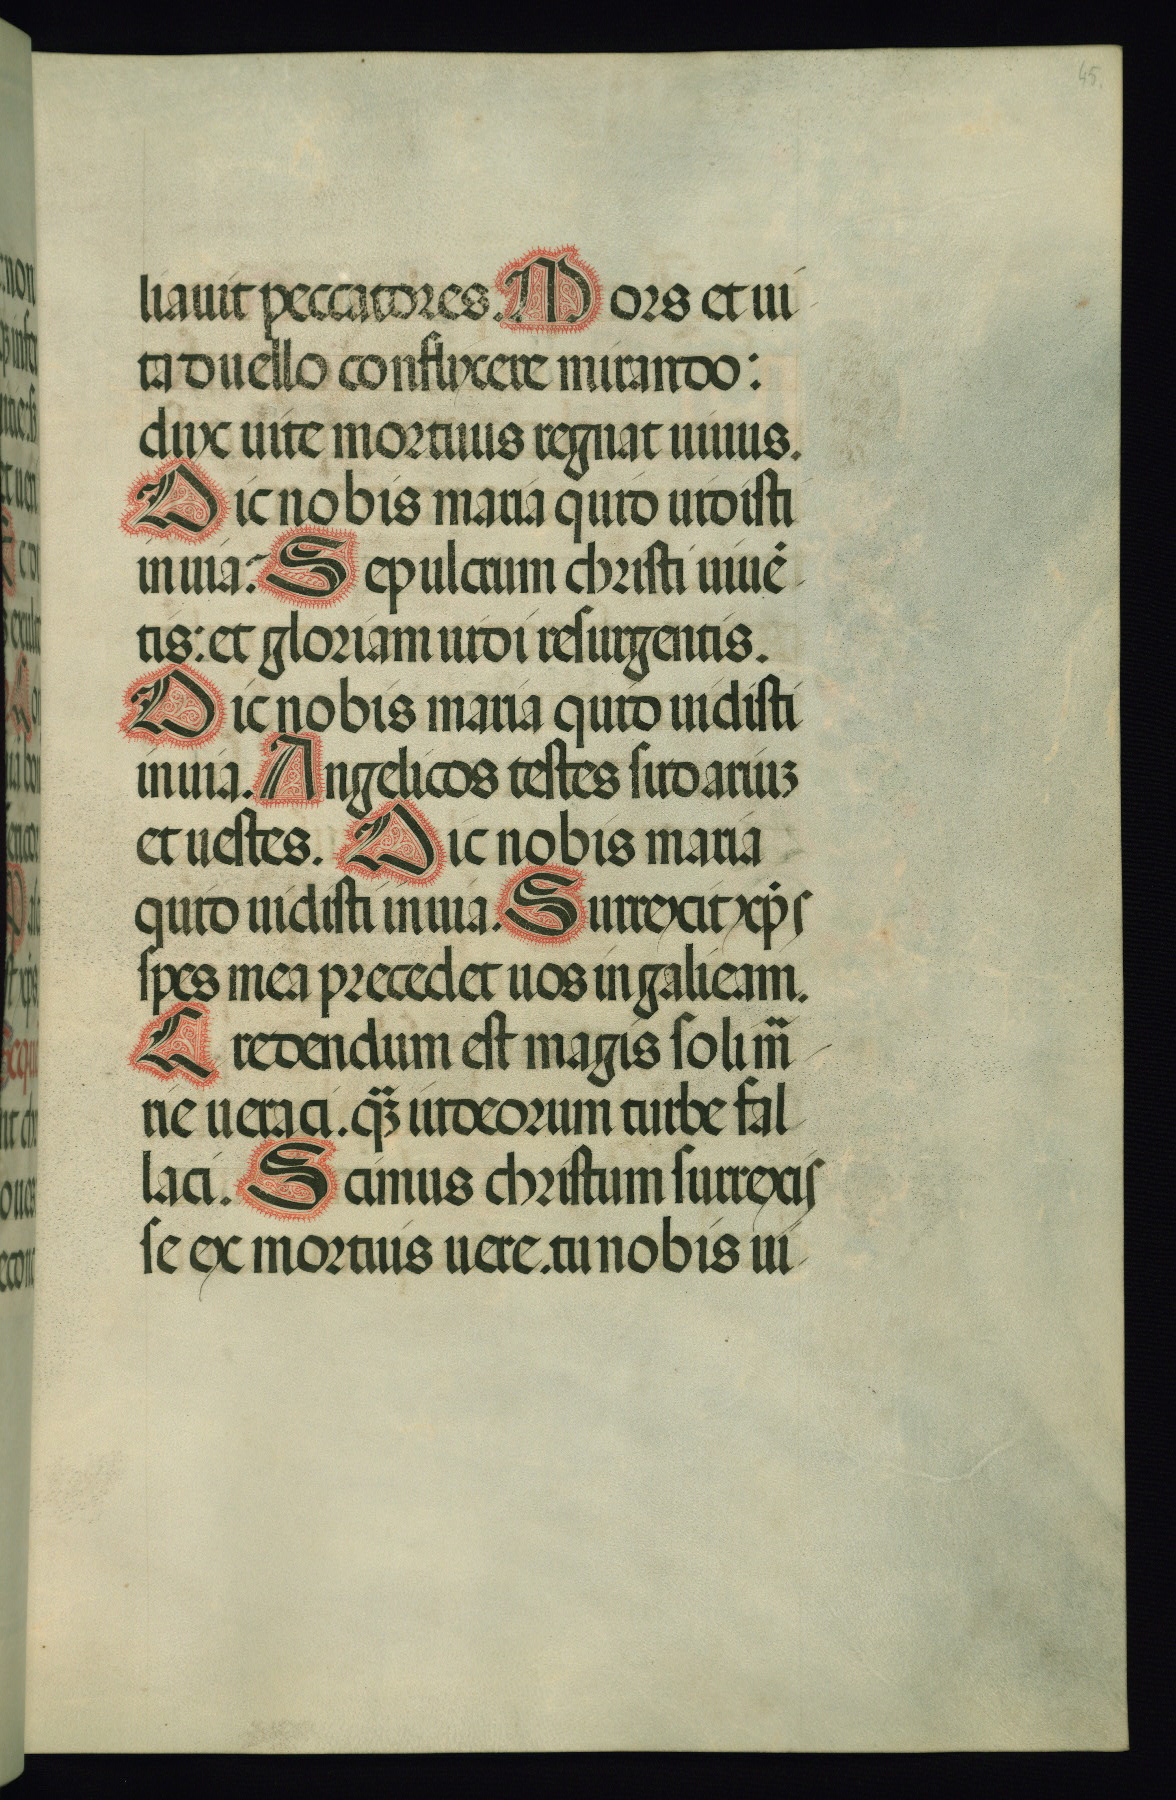 45.
liauit peccatores. Mors et ui
ta duello conflixere mirando:
dux uite mortuus regnat uiuus.
Dic nobis maria quid uidisti
in uia: Sepulcrum christi uiuē
tis: et gloriam uidi resurgentis.
Dic nobis maria quid uidisti
in uia. Angelicos testes sudariuz
et uestes. Dic nobis maria
quid uidisti in uia. Surrexit xp̄s
spes mea precedet uos in galieam.
Credendum est magis soli ma
rie ueraci. qz iudeorum turbe fal
laci. Scimus christum surrexis
se ex mortuis uere. tu nobis ui